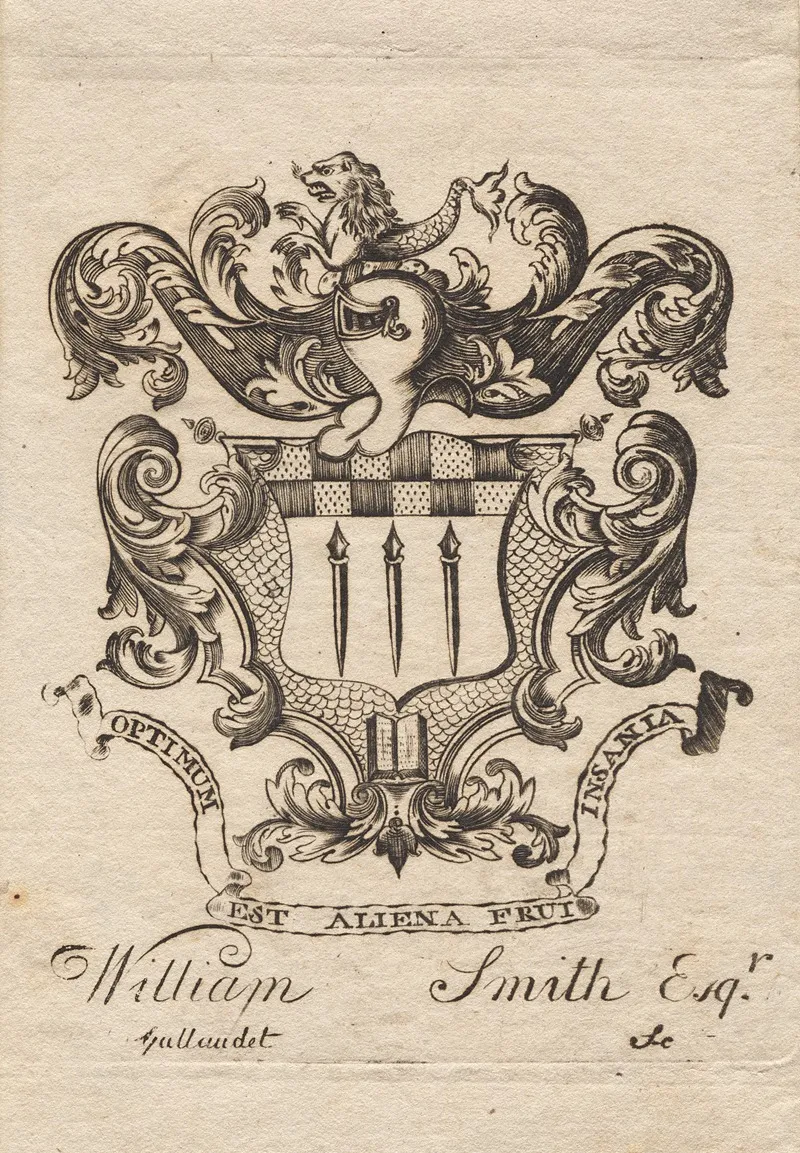 OPTIMUM
EST ALIENA FRUI
INSANIA
William Smith Esqr.
Gallaudet Sc